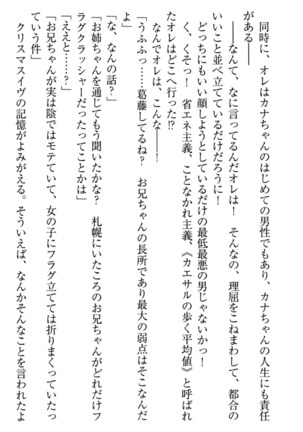 同時に、オレはカナちゃんのはじめての男性でもあり、カナちゃんの人生にも責任
がある――
　――なんて、なに言ってるんだオレは！　そんなの、理屈をこねまわして、都合の
いいこと並べ立てているだけだろうに！
　どっちにもいい顔しようとしているだけの最低最悪の男じゃないかっ！
　く、くそっ！　省エネ主義、ことなかれ主義、《カエサルの歩く平均値》と呼ばれ
たオレはどこへ行った!?
　なんでオレは、こんな――！
「うふふっ……葛藤してるね？　お兄ちゃんの長所であり最大の弱点はそこなんだ
よ」
「な、なんの話？」
「お姉ちゃんを通じてもう聞いたかな？　札幌にいたころのお兄ちゃんがどれだけフ
ラグクラッシャーだったってことかは」
「ええと……？」
「お兄ちゃんが実は陰ではモテていて、女の子にフラグ立てては折りまくっていたっ
ていう件」
　クリスマスイヴの記憶がよみがえる。そういえば、なんかそんなことを言われたよ